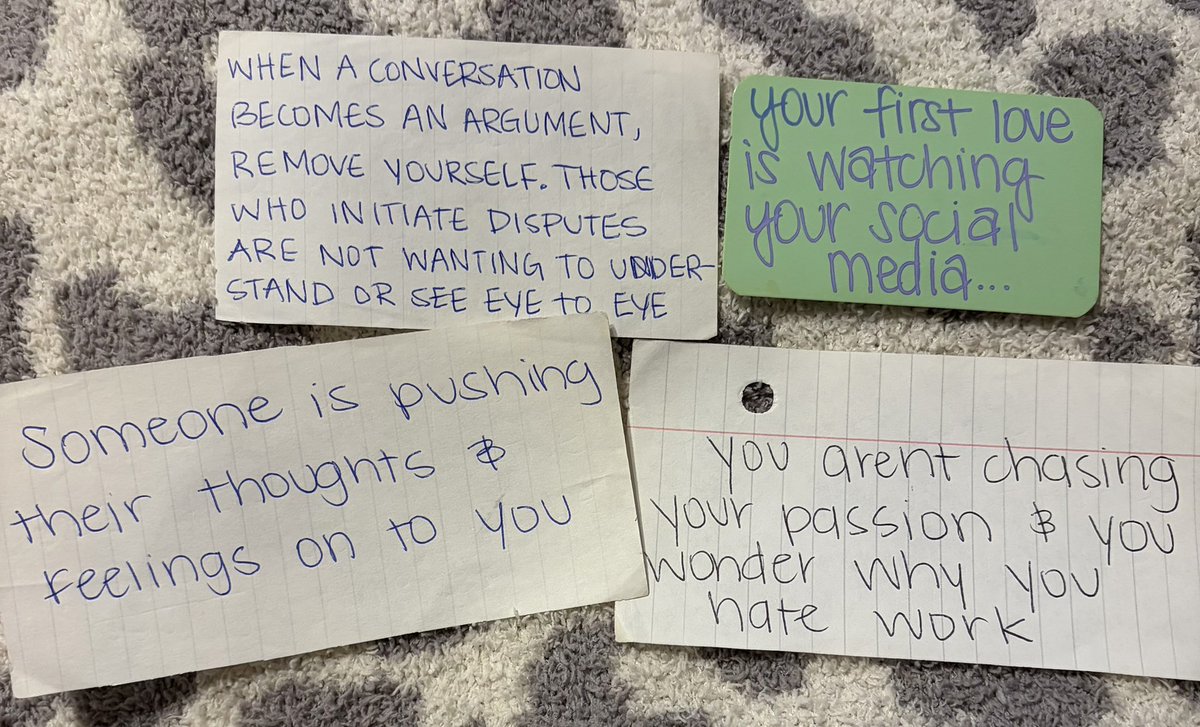 WHEN A CONVERSATION
BECOMES AN ARGUMENT,
REMOVE YOURSELF. THOSE
WHO INITIATE DISPUTES
ARE NOT WANTING TO UNDER-
STAND OR SEE EYE TO EYE
your first love
is watching
your social
media...
Someone is pushing
their thoughts &
feelings on to you
you arent chasing
your passion & you
wonder why you
hate work